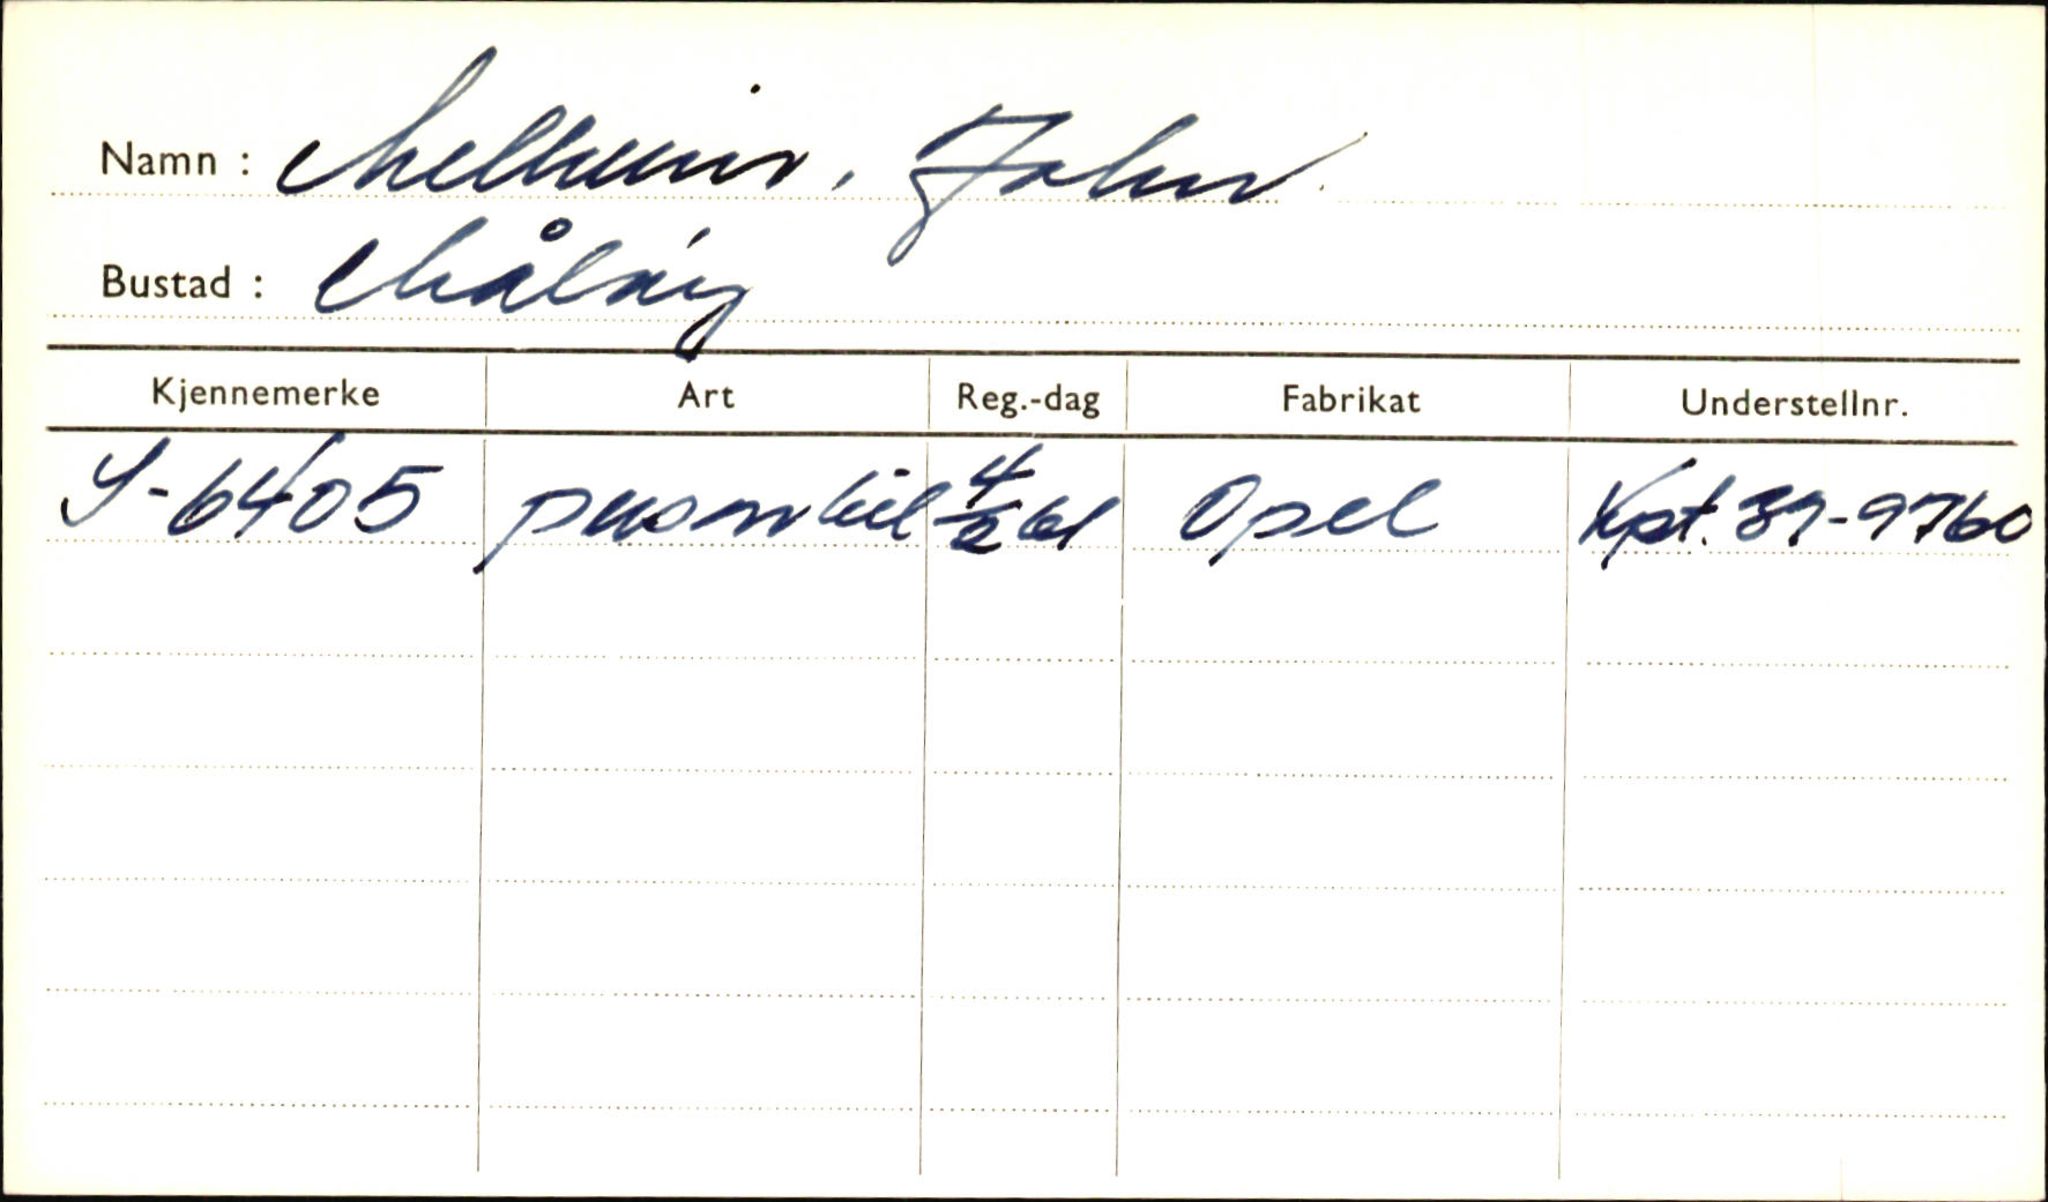 Namn : Melheim, John.
Bustad : Måløy
Kjennemerke Art Reg.-dag Fabrikat Understellnr.
S-6405 personbil 4/2 61 Opel Kpt. 39-9760